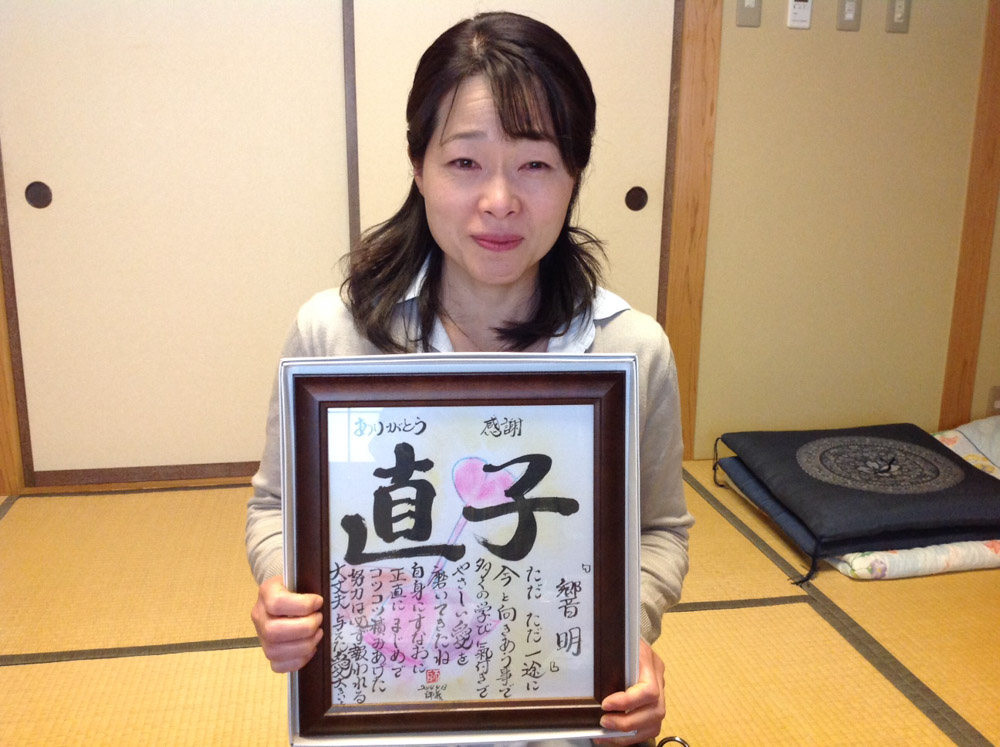 ありがとう
感謝
直子
響明
ただ ただ 一途に
今と向きあう事で
多くの学びに氣付きで
やさしい愛を
磨いてきたね
自身にすなおに
正直に まじめで
コツコツ積みあげた
努力は必ず報われる
大丈夫 与えた愛大きい